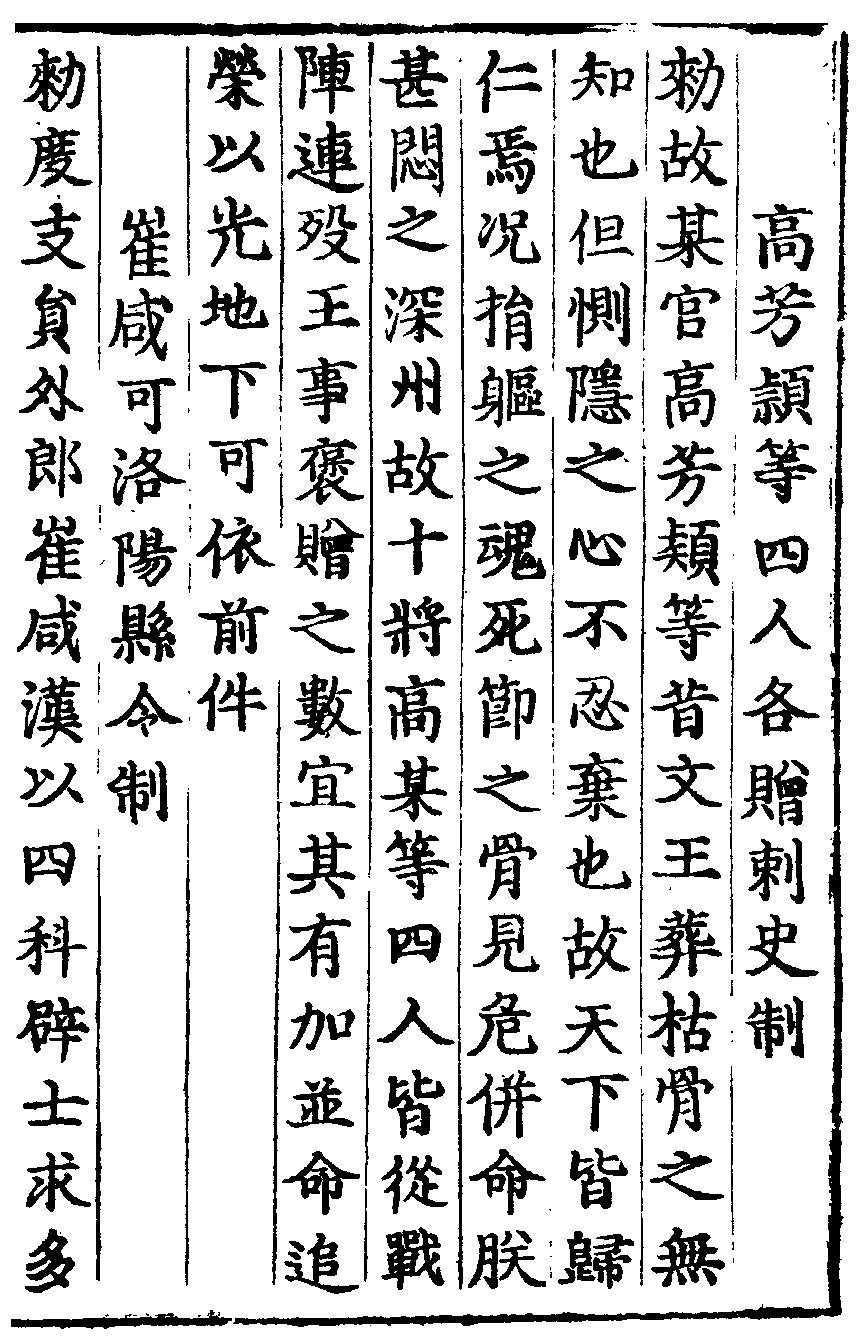 高芳潁等四人各贈刺史制
勑故某官高芳熲等昔文王葬枯骨之無
知也但惻隱之心不忍棄也故天下皆歸
仁焉况捐軀之魂死節之骨見危併命朕
甚悶之深州故十將高某等四人皆從戰
陣連殁王事褒贈之數宜其有加並命追
榮以光地下可依前件
崔咸可洛陽縣令制
勑度支貟外郎崔咸漢以四科辟士求多